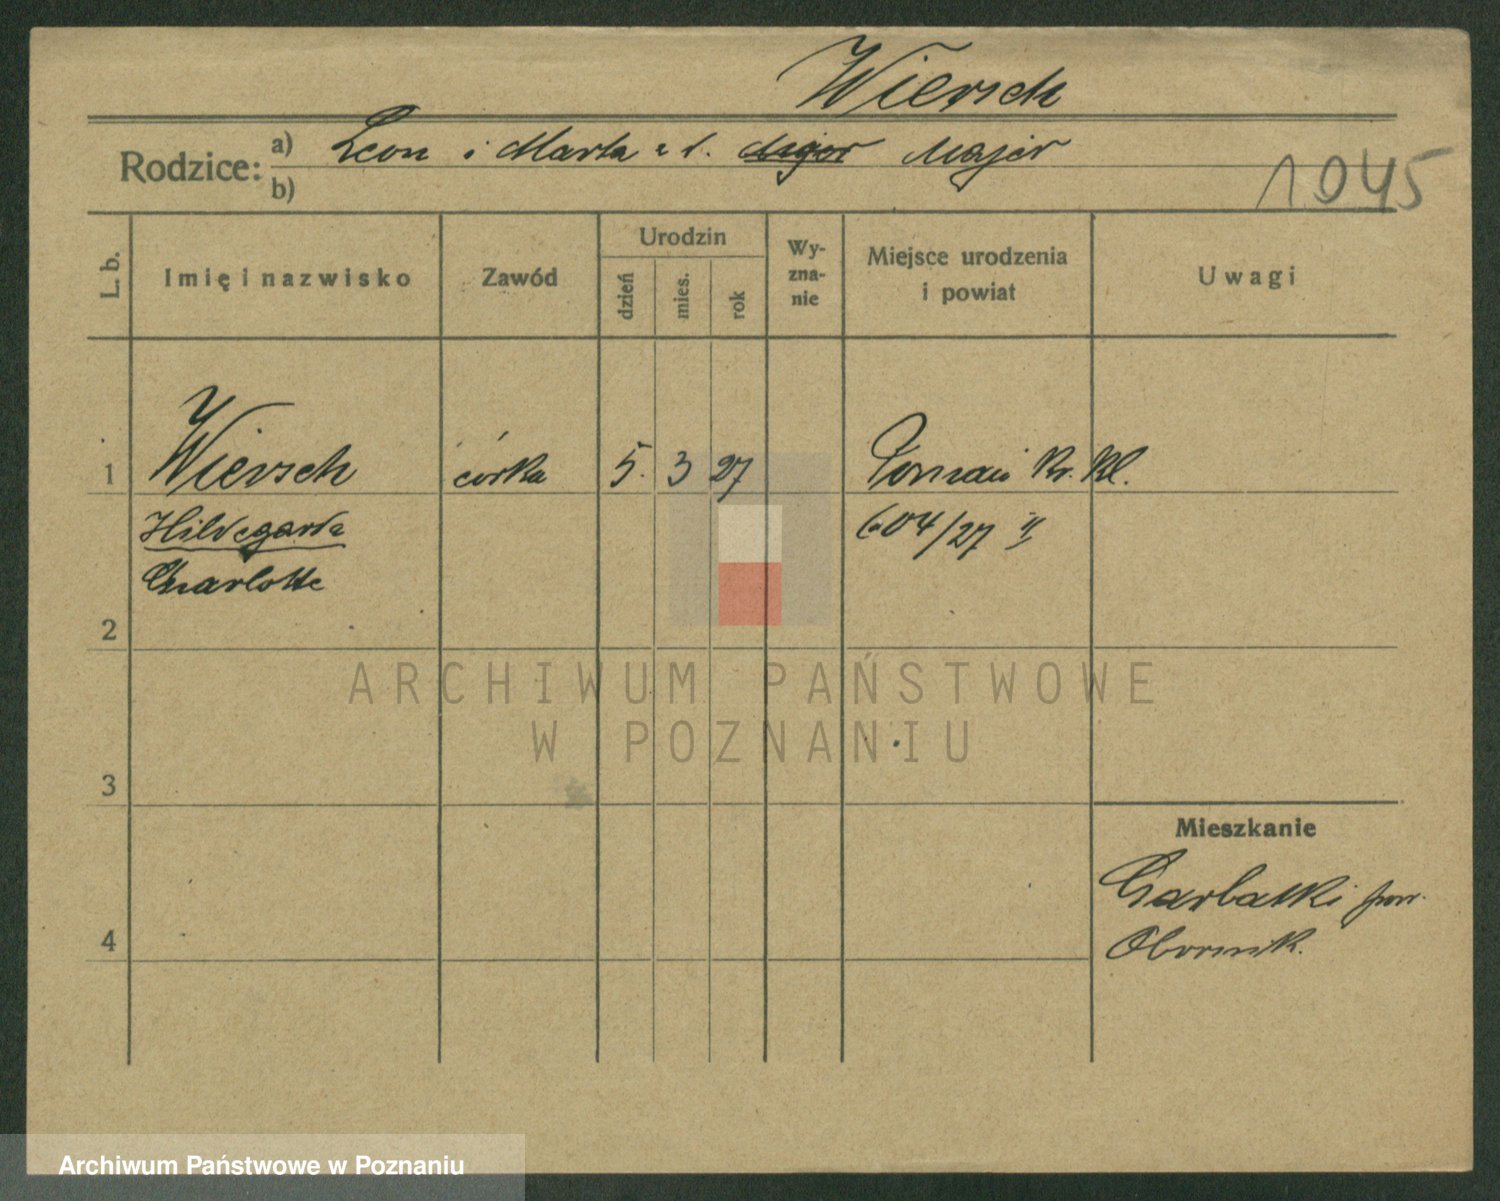 Wiersch
Rodzice: a) Leon i Marta z d. Major Majer
b)
1045
L. b. Imię i nazwisko Zawód Urodzin dzień mies. rok Wy-zna-nie Miejsce urodzenia i powiat Uwagi
1 Wiersch córka 5. 3 27 Poznań Kr. Kl.
Hildegarda 604/27 II
Charlotte
2
ARCHIWUM PAŃSTWOWE
W POZNANIU
3
Mieszkanie
Garbatki pow.
4 Obornik.
Archiwum Państwowe w Poznaniu